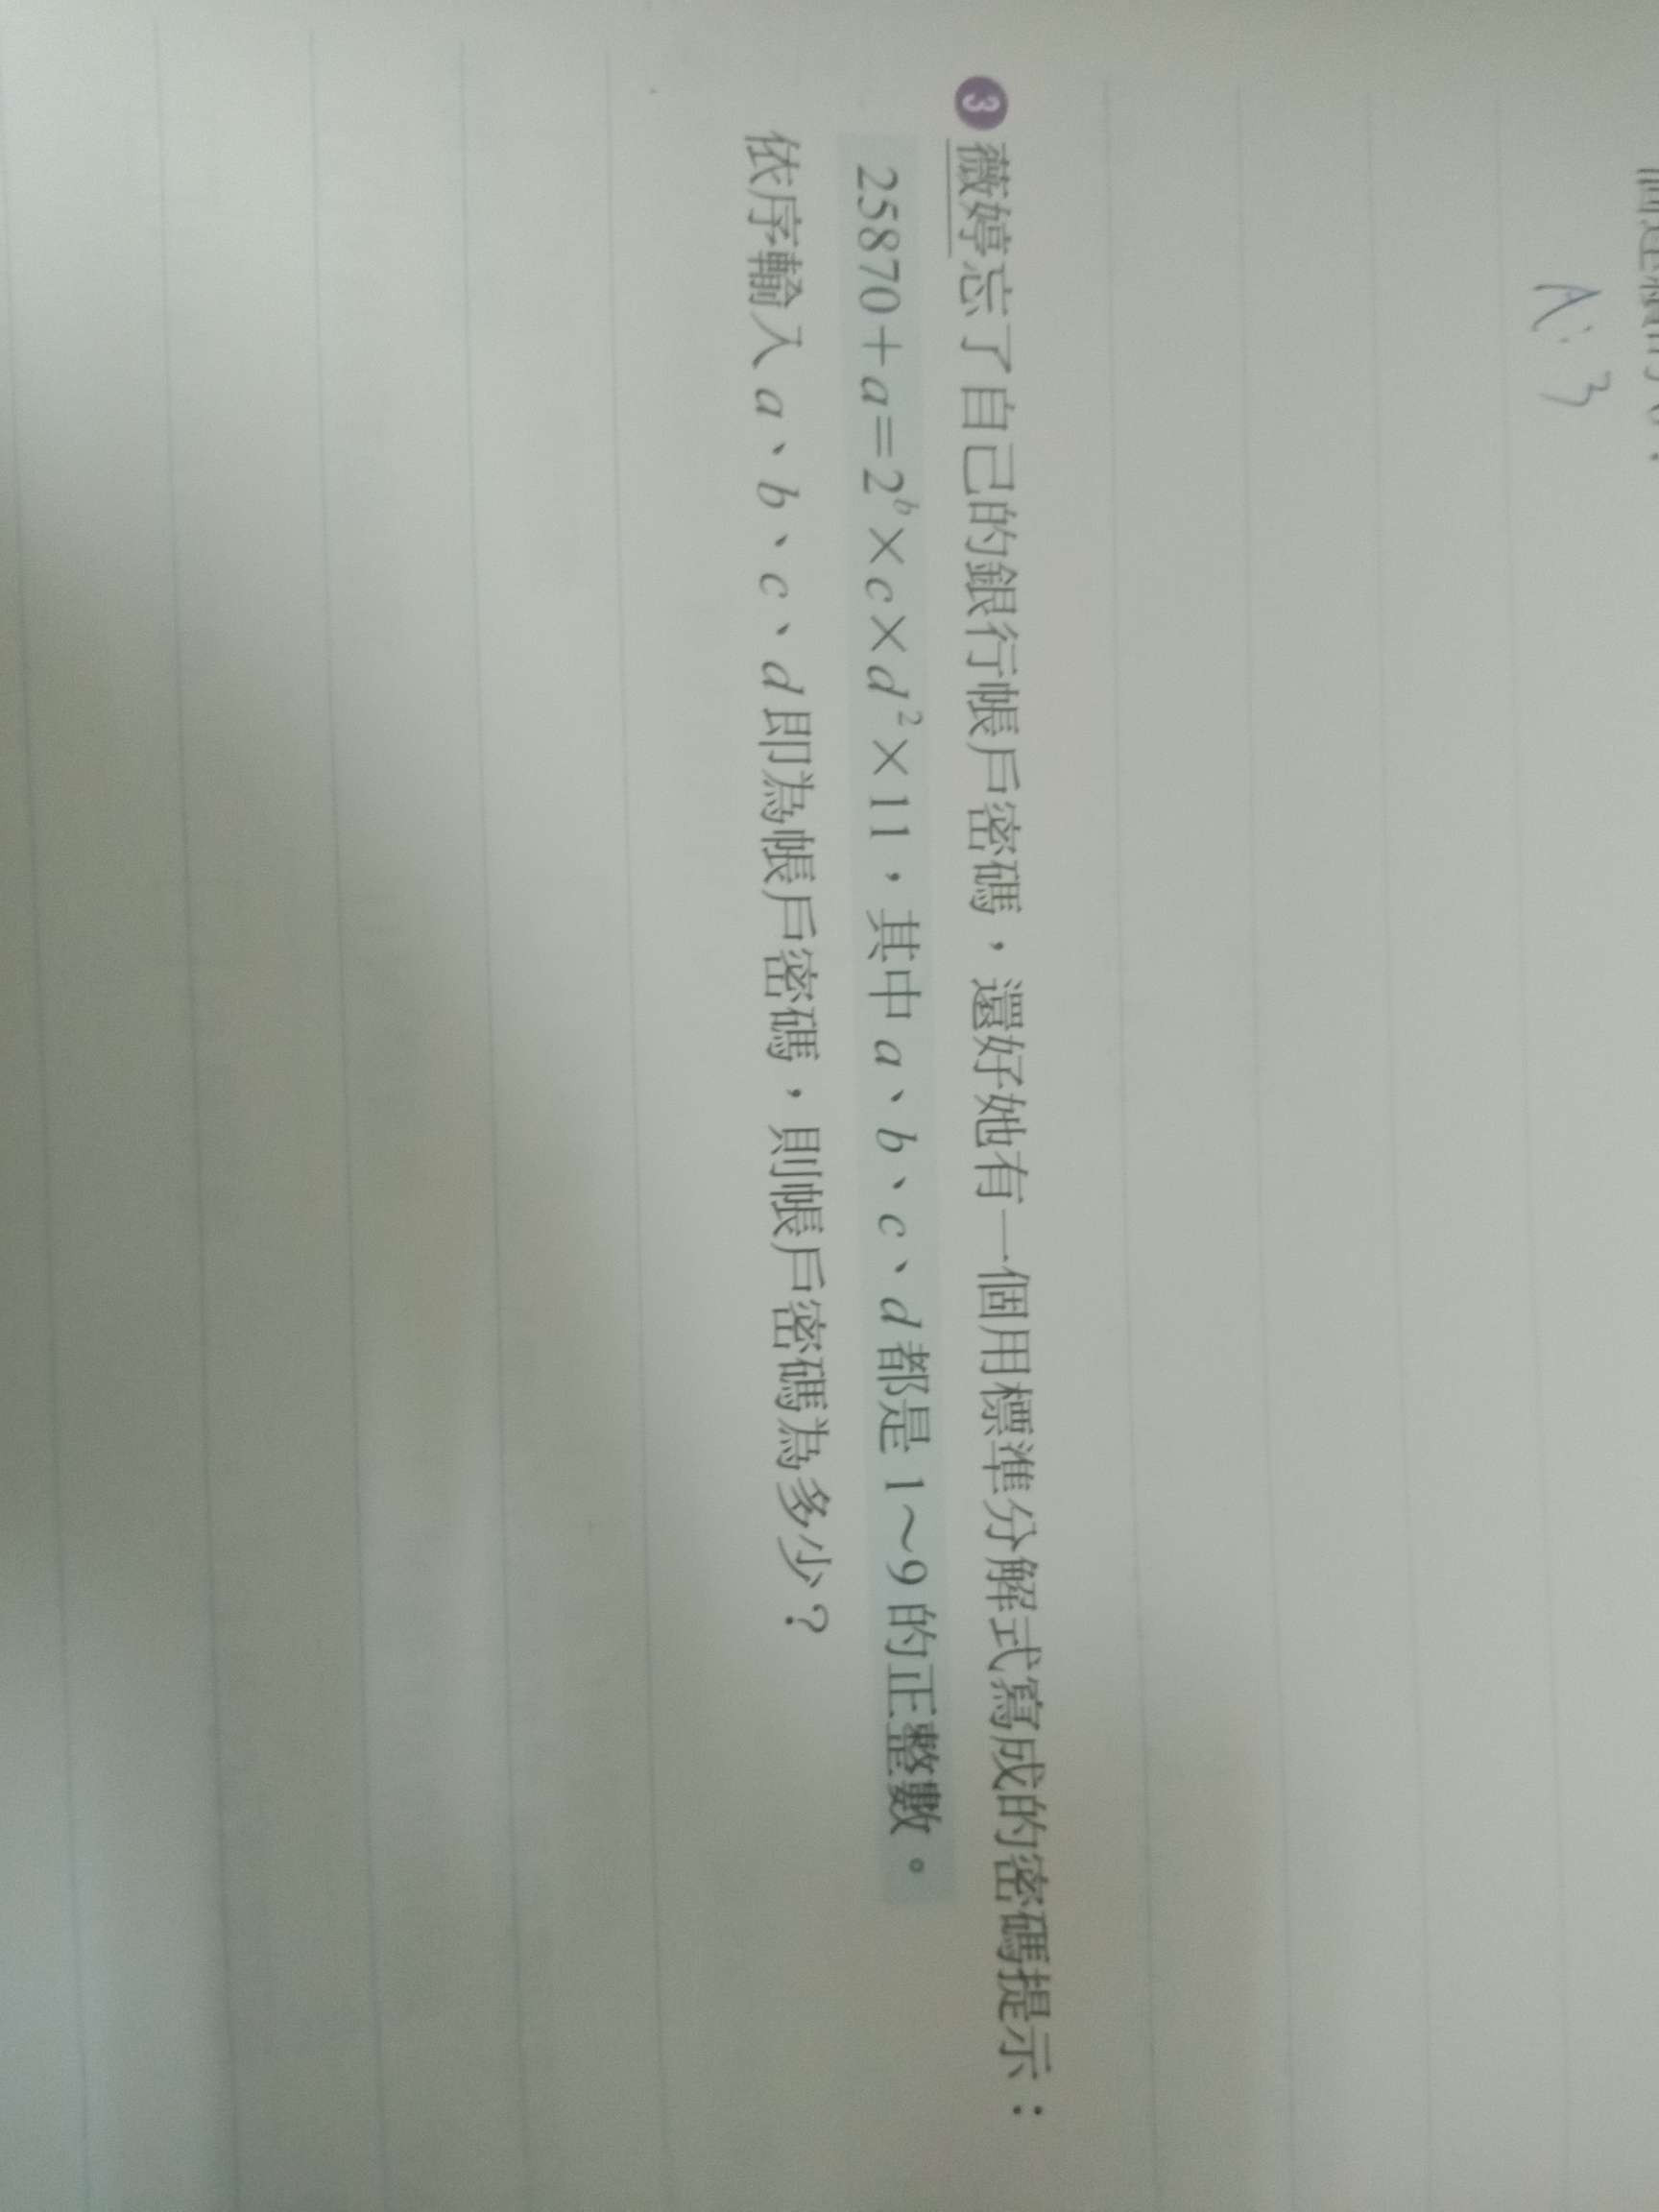 A: 3
❸ 薇婷忘了自己的銀行帳戶密碼，還好她有一個用標準分解式寫成的密碼提示：
25870+a=2ᵇ×c×d²×11，其中 a、b、c、d 都是 1～9 的正整數。
依序輸入 a、b、c、d 即為帳戶密碼，則帳戶密碼為多少？